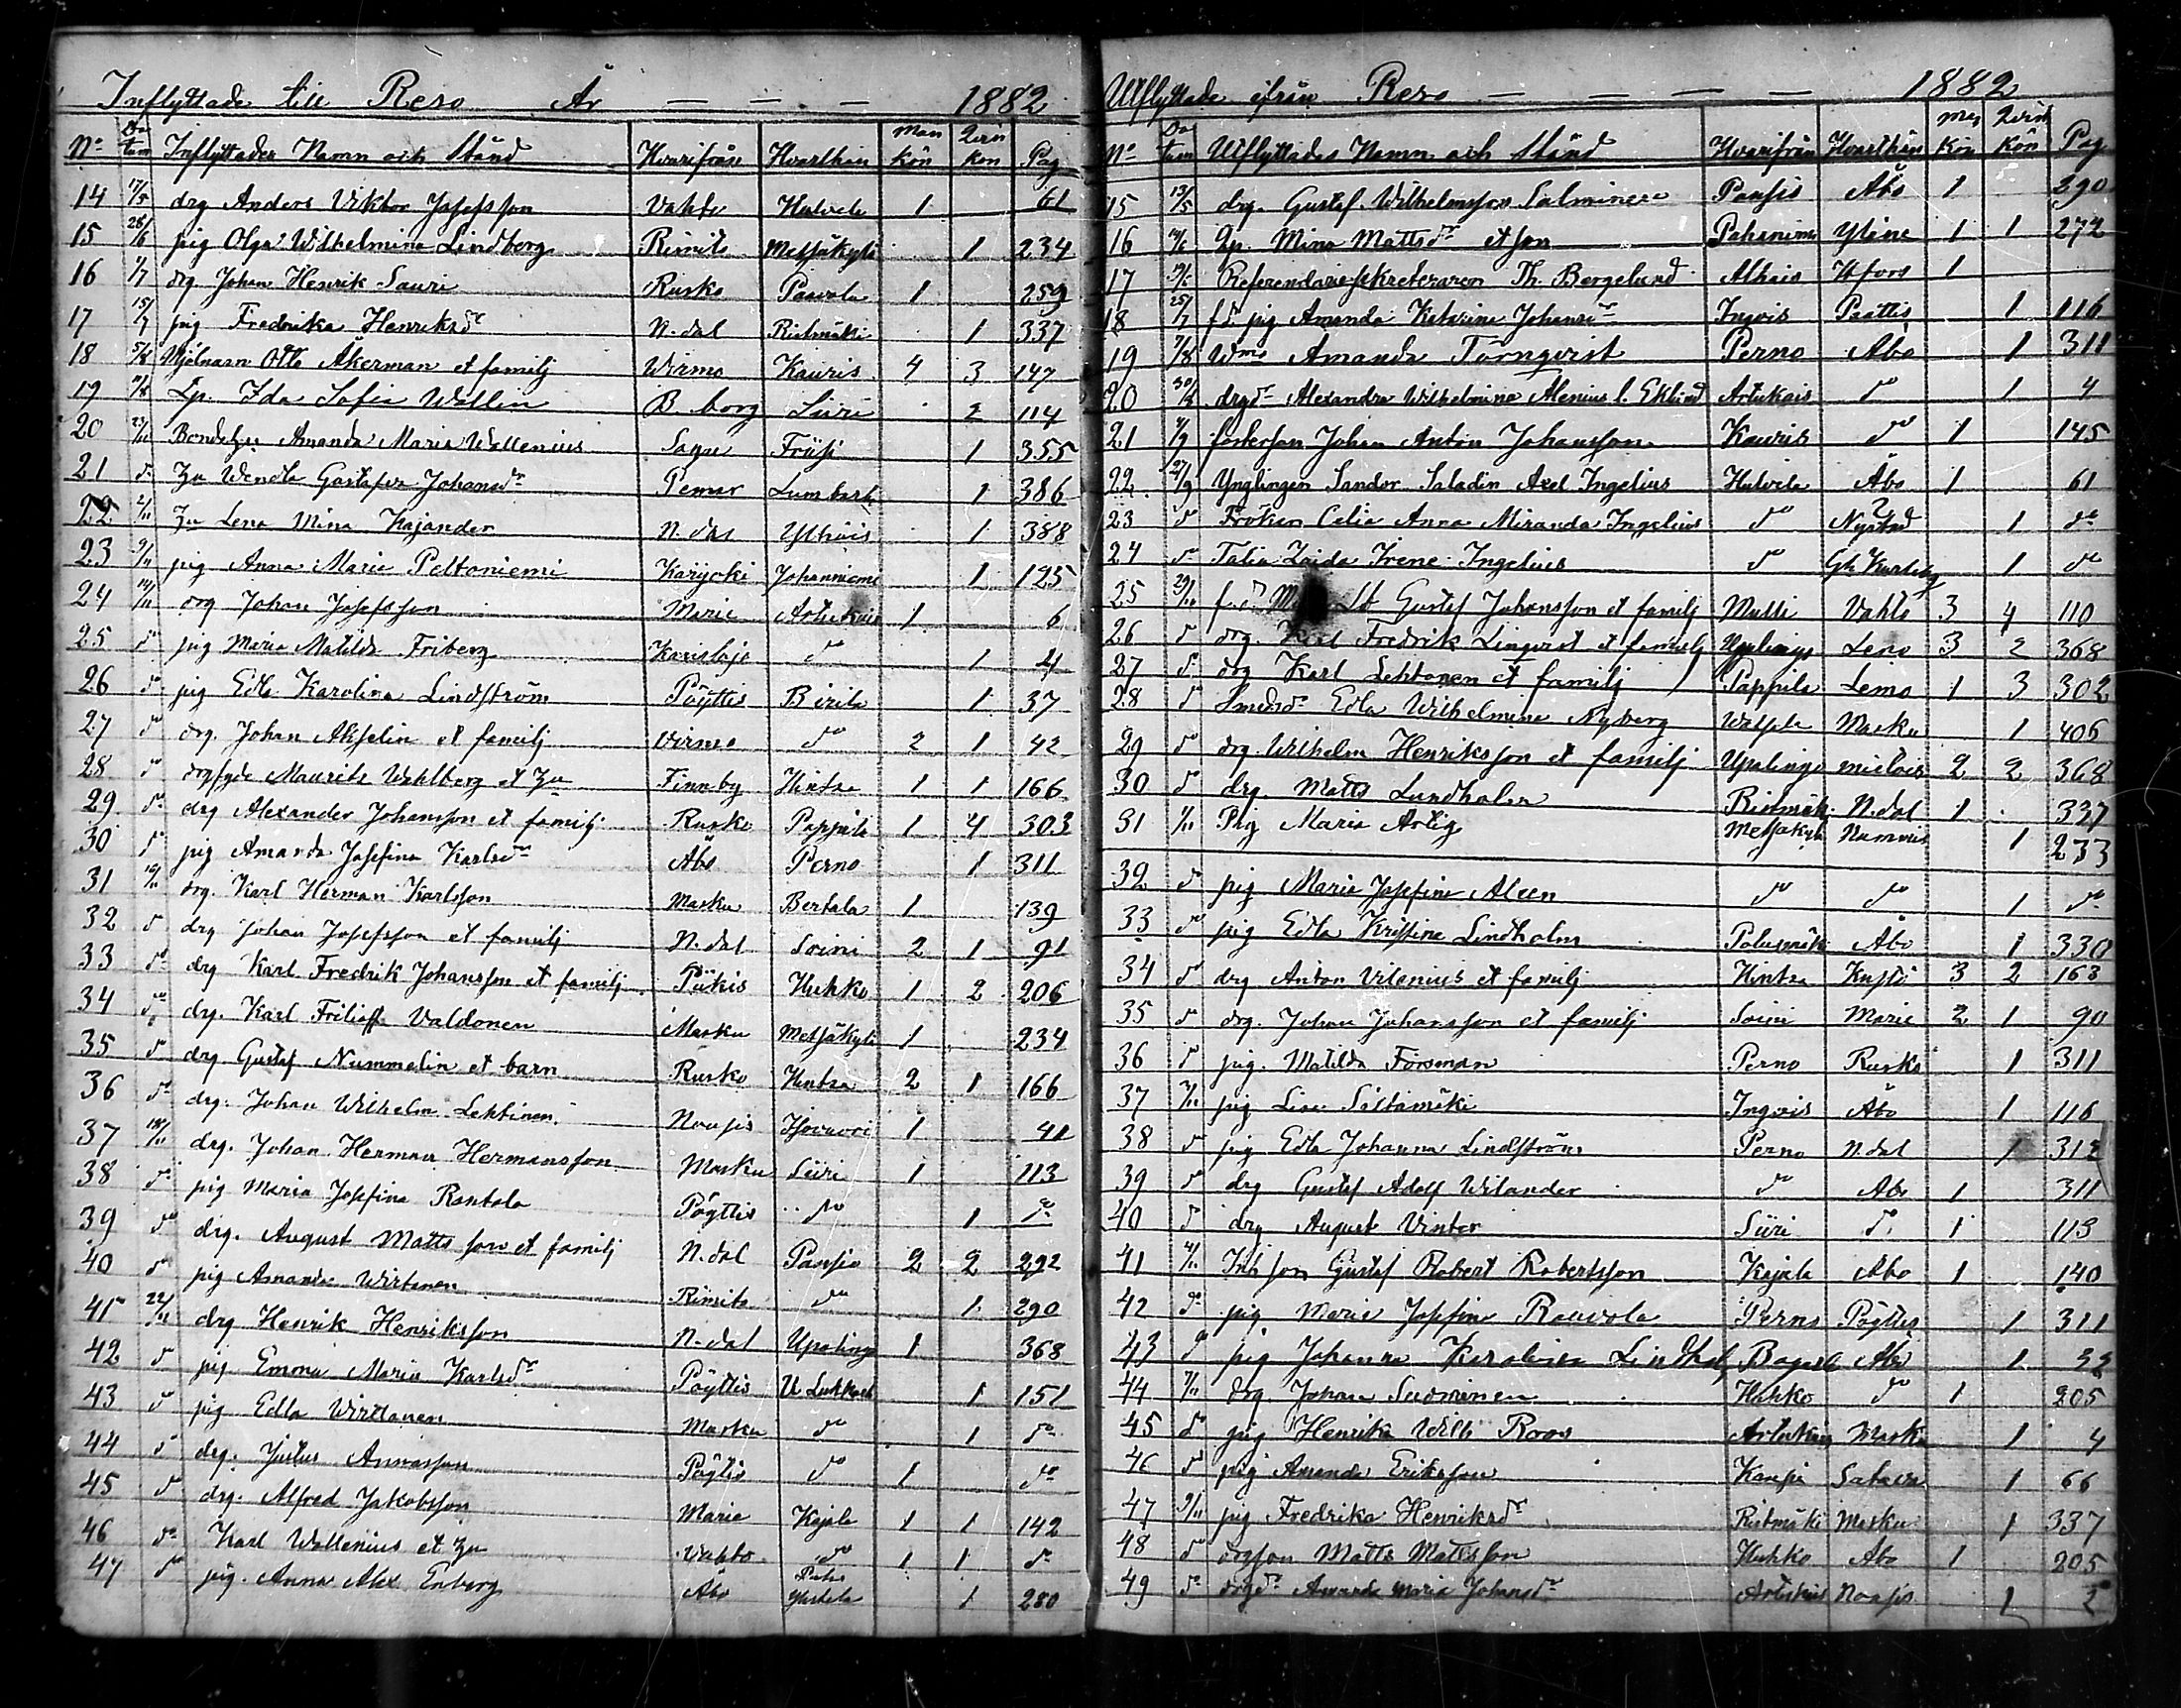 Inflyttade till Reso År — — — 1882
No Datum Inflyttades Namn och Stånd Hvarifrån Hvarthän Man kön Qvin kön Pag
14 17/5 drg Anders Viktor Josefsson Vahto Hulvela 1 61
15 28/6 pig Olga Wilhelmina Lindberg Rimito Metsäkylä 1 234
16 1/7 drg Johan Henrik Sauri Rusko Paavola 1 259
17 15/7 pig Fredrika Henriksdr N.dal Ristimäki 1 337
18 5/8 Mjölnarn Otto Åkerman et familj Wirmo Kauris 4 3 147
19 11/8 Lp. Ida Sofia Wallin B.borg Siiri 2 114
20 Amanda Maria Wallenius Sagu 1 355
21 do Wendla Gustafva Johansdr Pemar 1 386
22 2/11 Lena Mina Kajander N.dal 1 388
23 9/11 pig Anna Maria Peltoniemi Johannieme 1 125
24 drg Johan Josefsson Marie Artukais 1 6
25 do pig Maria Matilda Friberg Karislojo do 1 4
26 do pig Edla Karolina Lindström Pöyttis 1 37
27 do drg. Johan Akselin et familj Virmo do 2 1 42
28 do Maurits Wahlberg et Finnby Hintsa 1 1 166
29 do drg Alexander Johansson et familj Rusko Pappila 1 4 303
30 do pig Amanda Josefina Karlsdr Åbo Perno 1 311
31 drg. Karl Herman Karlsson Masku Bertala 1 139
32 do drg Johan Josefsson et familj N.dal Soini 2 1 91
33 do drg Karl Fredrik Johansson et familj Piikis Huhko 1 2 206
34 do drg. Karl Valdonen Masku Metsäkylä 1 234
35 do drg Gustaf Nummelin et barn Rusko Hintsa 2 1 166
36 do drg. Johan Wilhelm Lehtinen Nousis 1 41
37 18/11 drg. Johan Herman Hermansson Masku Siiri 1 113
38 do pig Maria Josefina Rantala Pöyttis do 1 do
39 do drg. August Mattsson et familj N.dal Pansio 2 2 292
40 do pig Amanda Wirtanen Rimito do 1 290
41 22/11 drg Henrik Henriksson N.dal Upalinge 1 368
42 do pig Emma Maria Karlsdr Pöyttis 1 151
43 do pig Edla Wirtanen Masku do 1 do
44 do drg. Julius Annasson Pöytis do 1 do
45 do drg. Alfred Jakobsson Marie Kajala 1 1 142
46 do Karl Wallenius et Vahto do 1 1 do
47 do pig. Anna Alex. Enberg Åbo 1 280
Utflyttade ifrån Reso — — — — 1882
No Datum Utflyttades Namn och Stånd Hvarifrån Hvarthän man kön Qvin kön Pag
15 13/5 drg. Gustaf Wilhelmsson Salminen Pansio Åbo 1 290
16 Mina Mattsdr et son Pahaniemi Yläne 1 1 272
17 Referendariesekreteraren Th. Bergelund Alhais H:fors 1
18 25/7 pig Amanda Katarina Johansdr Ingois Paattis 1 116
19 7/8 Amanda Törnqvist Perno Åbo 1 311
20 30/8 drgdr Alexandra Wilhelmina Alenius l. Eklund Artukais do 1 4
21 fosterson Johan Anton Johansson Kauris do 1 145
22 27/9 Ynglingen Sandor Saladin Axel Ingelius Hulvela Åbo 1 61
23 do Fröken Celia Anna Miranda Ingelius do Nystad 1 do
24 do Zaida Irene Ingelius do 1 do
25 Gustaf Johansson et familj Vahto 3 4 110
26 do drg. Karl Fredrik Lingvist et familj Upalinge Lemo 3 2 368
27 do drg Karl Lehtonen et familj Pappila Lemo 1 3 302
28 do Smedsdr Edla Wilhelmina Nyberg Masku 1 406
29 do drg. Wilhelm Henriksson et familj Upalinge mietois 2 2 368
30 do drg. Matts Lundholm Ristimäki N.dal 1 337
31 1/11 Pig Maria Artig Metsäkylä Nummis 1 233
32 do pig Maria Josefina Aleen do do 1 do
33 do pig Edla Kristina Lindholm Palusmäki Åbo 1 330
34 do drg Anton Vilenius et familj Hintsa Kustö 3 2 168
35 do drg. Johan Johansson et familj Soini Marie 2 1 90
36 do pig. Matilda Forsman Perno Rusko 1 311
37 pig Lisa Siltamäki Ingois Åbo 1 116
38 do pig Edla Johanna Lindström Perno N.dal 1 312
39 do drg Gustaf Adolf Wilander do Åbo 1 311
40 do drg August Vinter Siiri do 1 113
41 4/11 Inh son Gustaf Robert Robertsson Kajala Åbo 1 140
42 do pig Maria Josefina Rauvola Perno Pöyttis 1 311
43 do pig Johanna Karolina Lindhol Åbo 1 33
44 7/11 drg. Johan Suominen Huhko do 1 205
45 do pig Henrika Roos Artukais Masku 1 4
46 do pig Amanda Eriksson 1 66
47 9/11 pig Fredrika Henriksdr Ristimäki Masku 1 337
48 do drgson Matts Mattsson Huhko Åbo 1 205
49 do drgdr Amanda Maria Johansdr Artukais Nousis 1 2